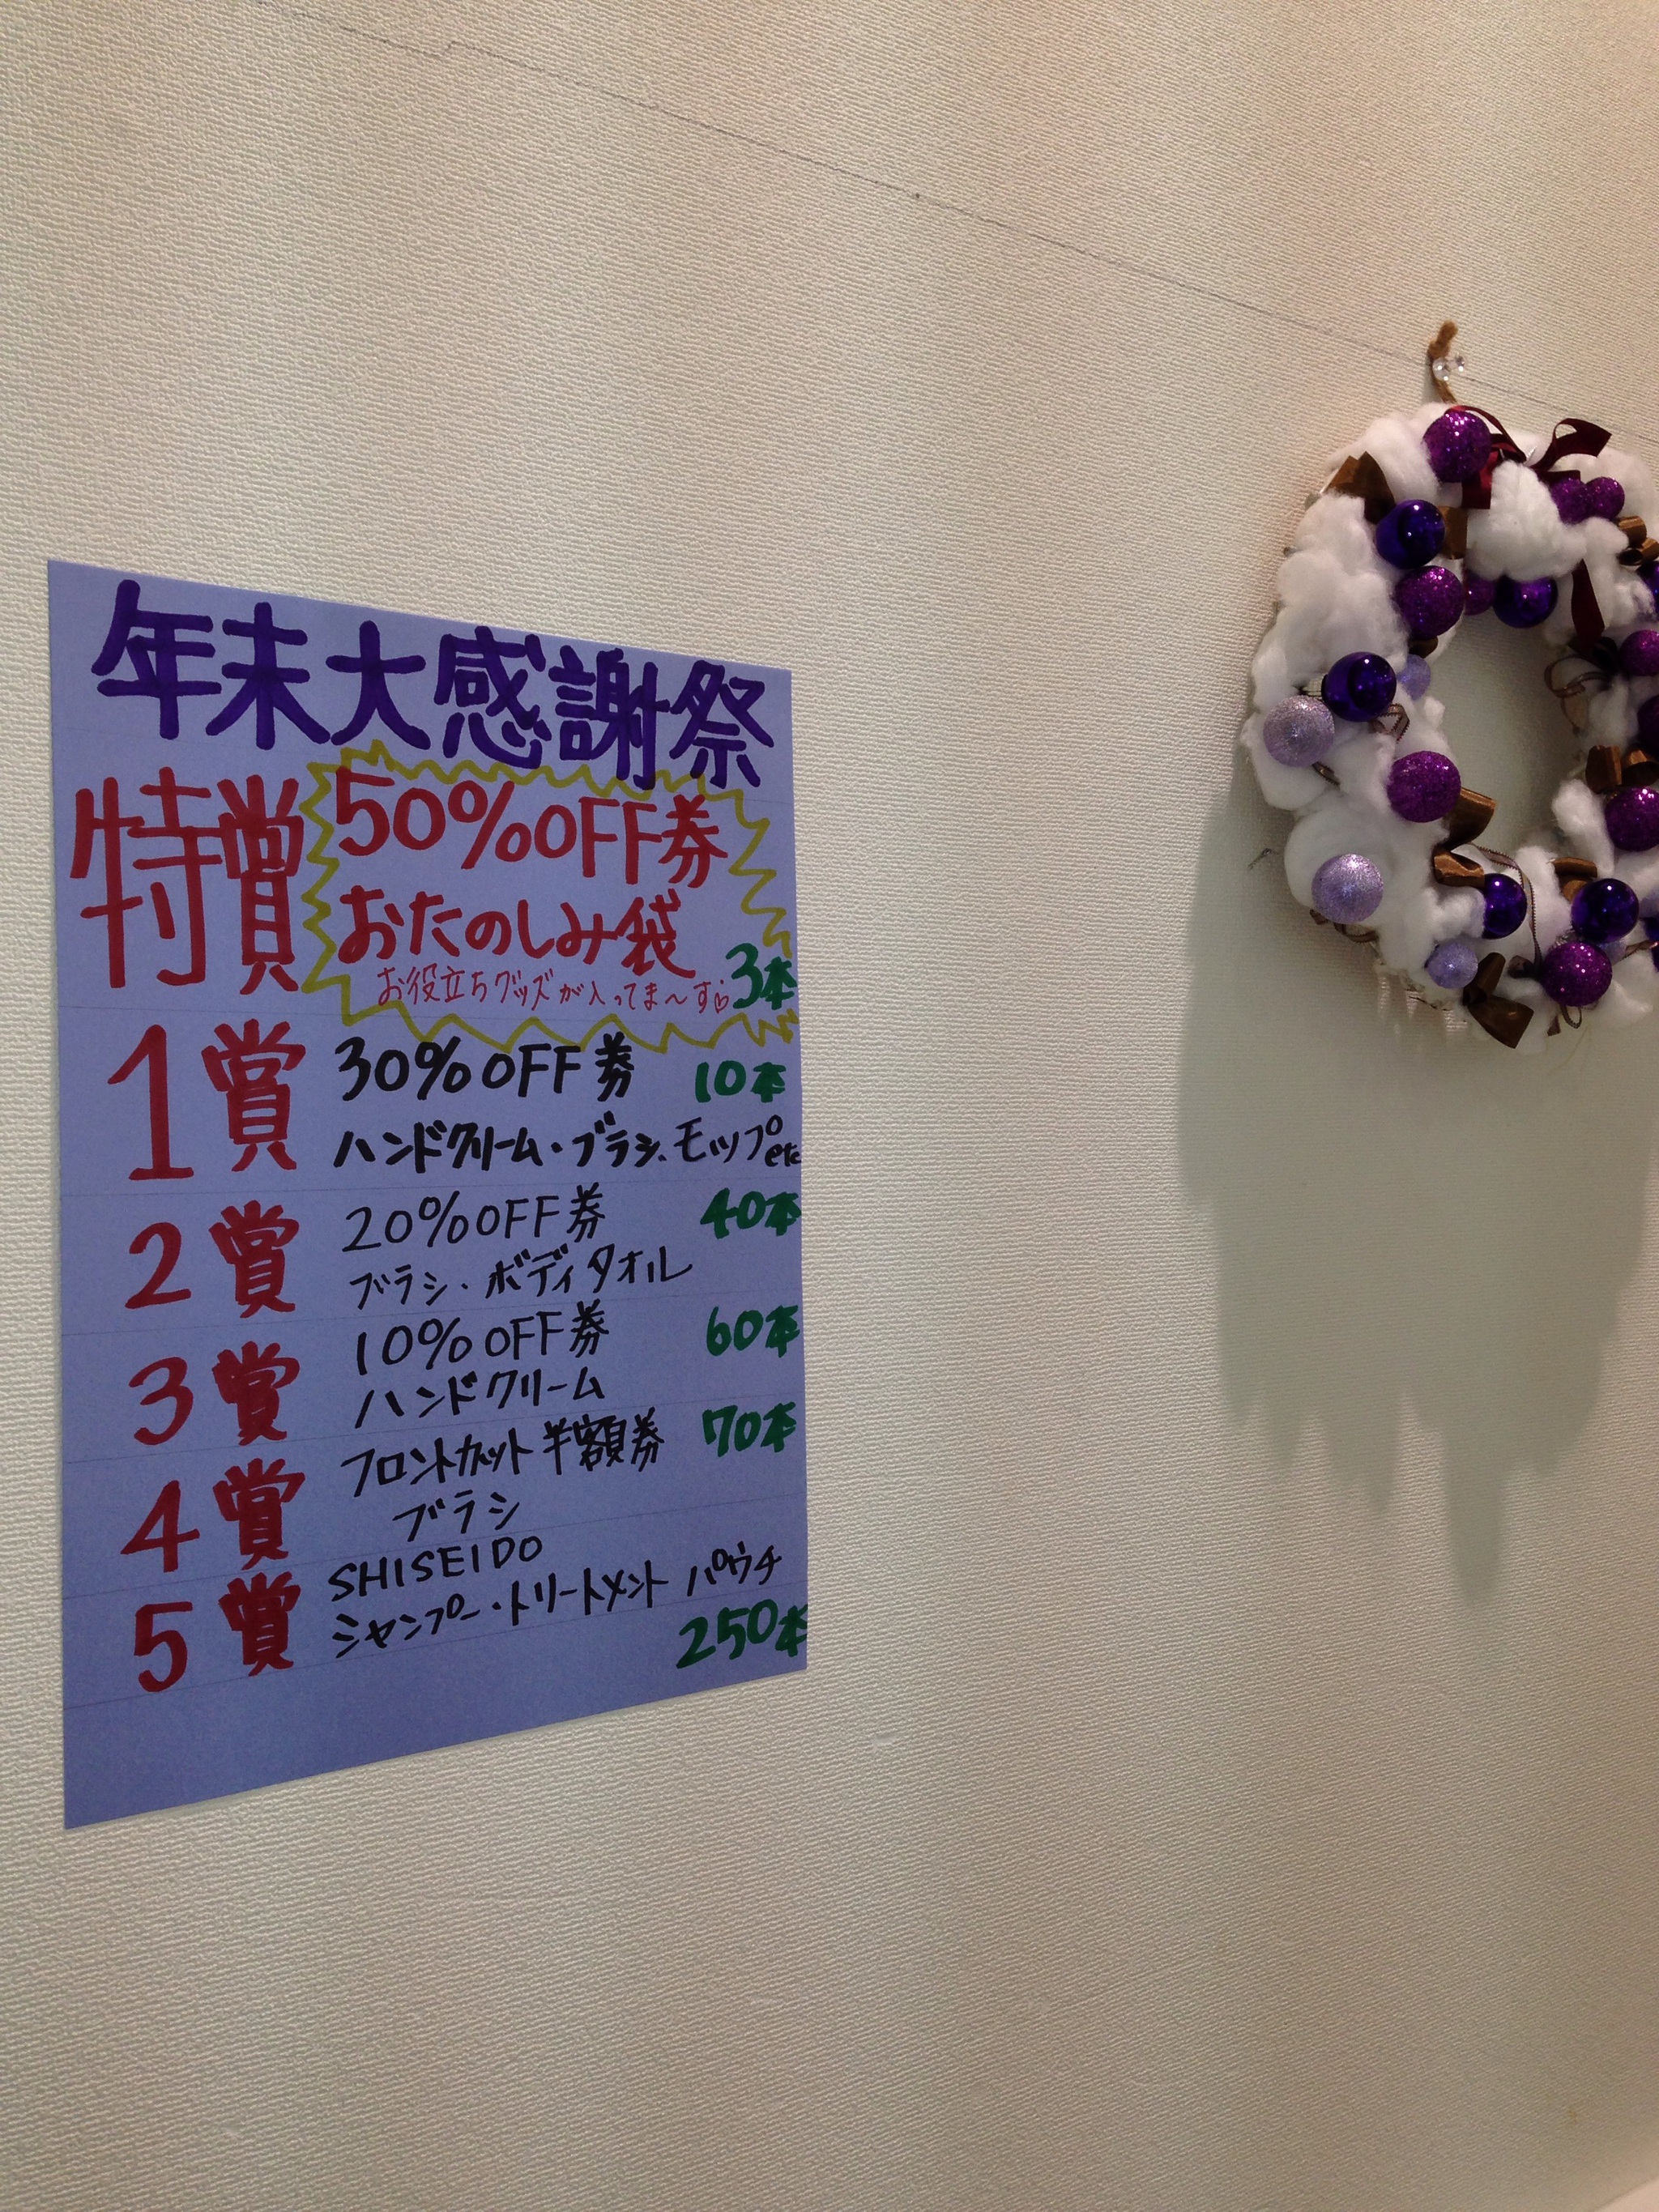 年末大感謝祭
特賞 50%OFF券
おたのしみ袋
お役立ちグッズが入ってま〜す♡ 3本
1賞 30%OFF券 10本
ハンドクリーム・ブラシ、モップetc
2賞 20%OFF券 40本
ブラシ・ボディタオル
3賞 10%OFF券 60本
ハンドクリーム
4賞 フロントカット半額券 70本
ブラシ
5賞 SHISEIDO
シャンプー・トリートメント パウチ
250本